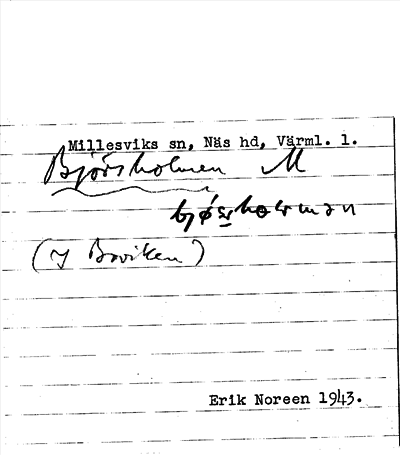 Millesviks sn, Näs hd, Värml. l.
Björsholmen M
(I Borviken)
Erik Noreen 1943.